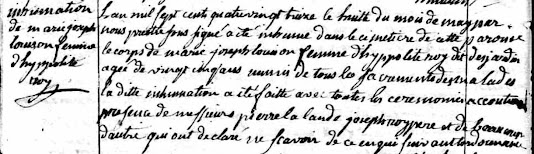 inhumation
de marie joseph
louison femme
d'hyppolite
roy
L'an mil sept cents quatre vingt treize le huite du mois de may par
nous prestre sous signé a été inhumé dans le cimetiere de cette paroisse
le corps de marie joseph louison femme d'hyppolite roy dit desjardin
agée de vingt cinq ans munis de tous les sacrements des malades
la ditte inhumation a été faitte avec toutes les ceremonies accoutu
presence de messieurs pierre la lande joseph roy pere et de beaucoup
d'autre qui ont declaré ne scavoir de ce enquis suivant l'ordonnance